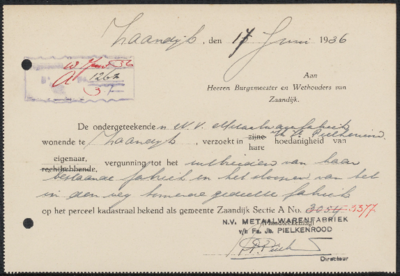 Zaandijk, den 17 Juni 1936
1262
Aan
Heeren Burgemeester en Wethouders van
Zaandijk.
De ondergeteekende n N.V. Metaalwarenfabriek
v/h Fa. Js. Pielkenrood
wonende te Zaandijk, verzoekt in zijne hare hoedanigheid van
eigenaar, rechthebbende, vergunning tot het uitbreiden van haar
bestaande fabriek en het
in den weg komende gedeelte fabriek
op het perceel kadastraal bekend als gemeente Zaandijk Sectie A No. 3377
N.V. METAALWARENFABRIEK
v/h Fa. Js. PIELKENROOD
Directeur